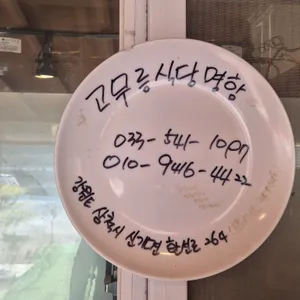 고무릉식당명함
033-541-1097
010-9416-4422
강원도 삼척시 신기면 환선로 264